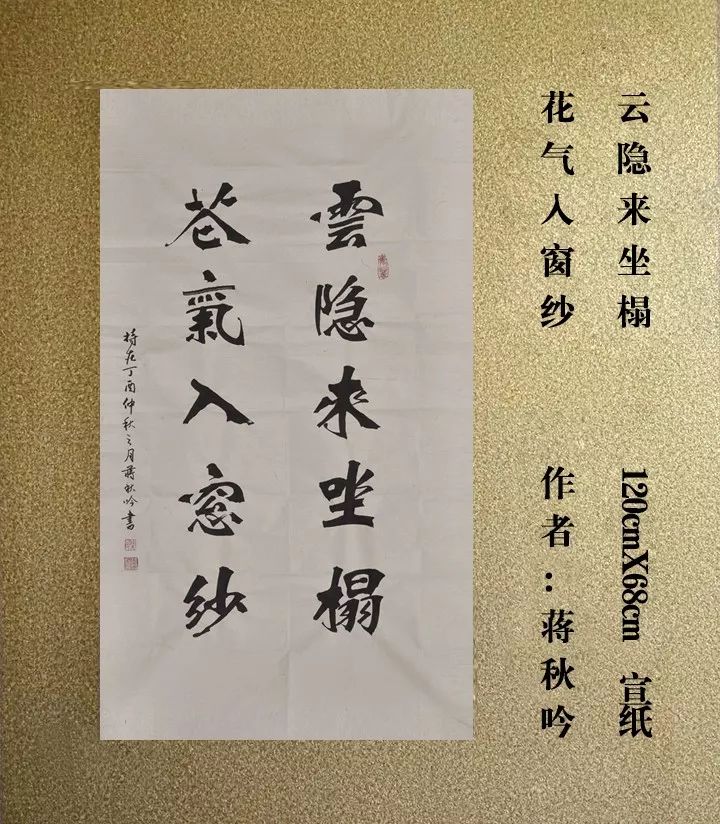 云隐来坐榻
花气入窗纱
120cmX68cm 宣纸
作者：蒋秋吟
雲隐来坐榻
花氣入窓纱
時在丁酉仲秋之月蒋秋吟書